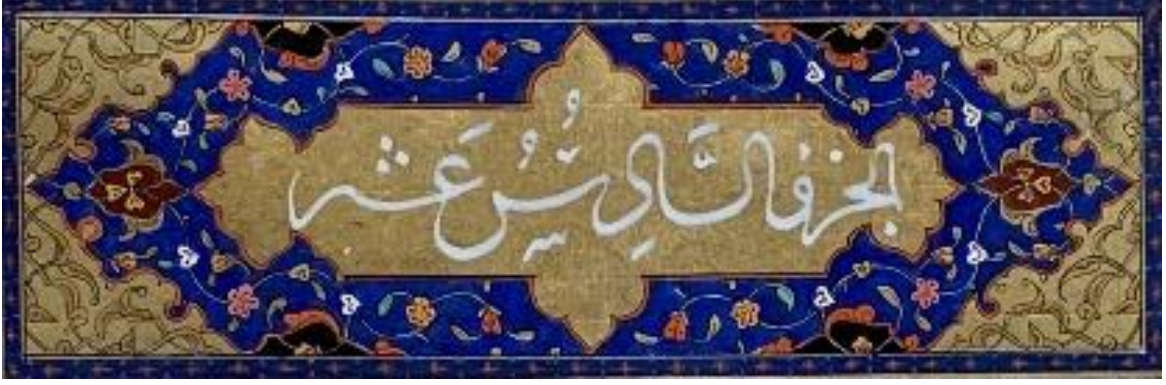 الجزؤ السَّادِسُ عشر